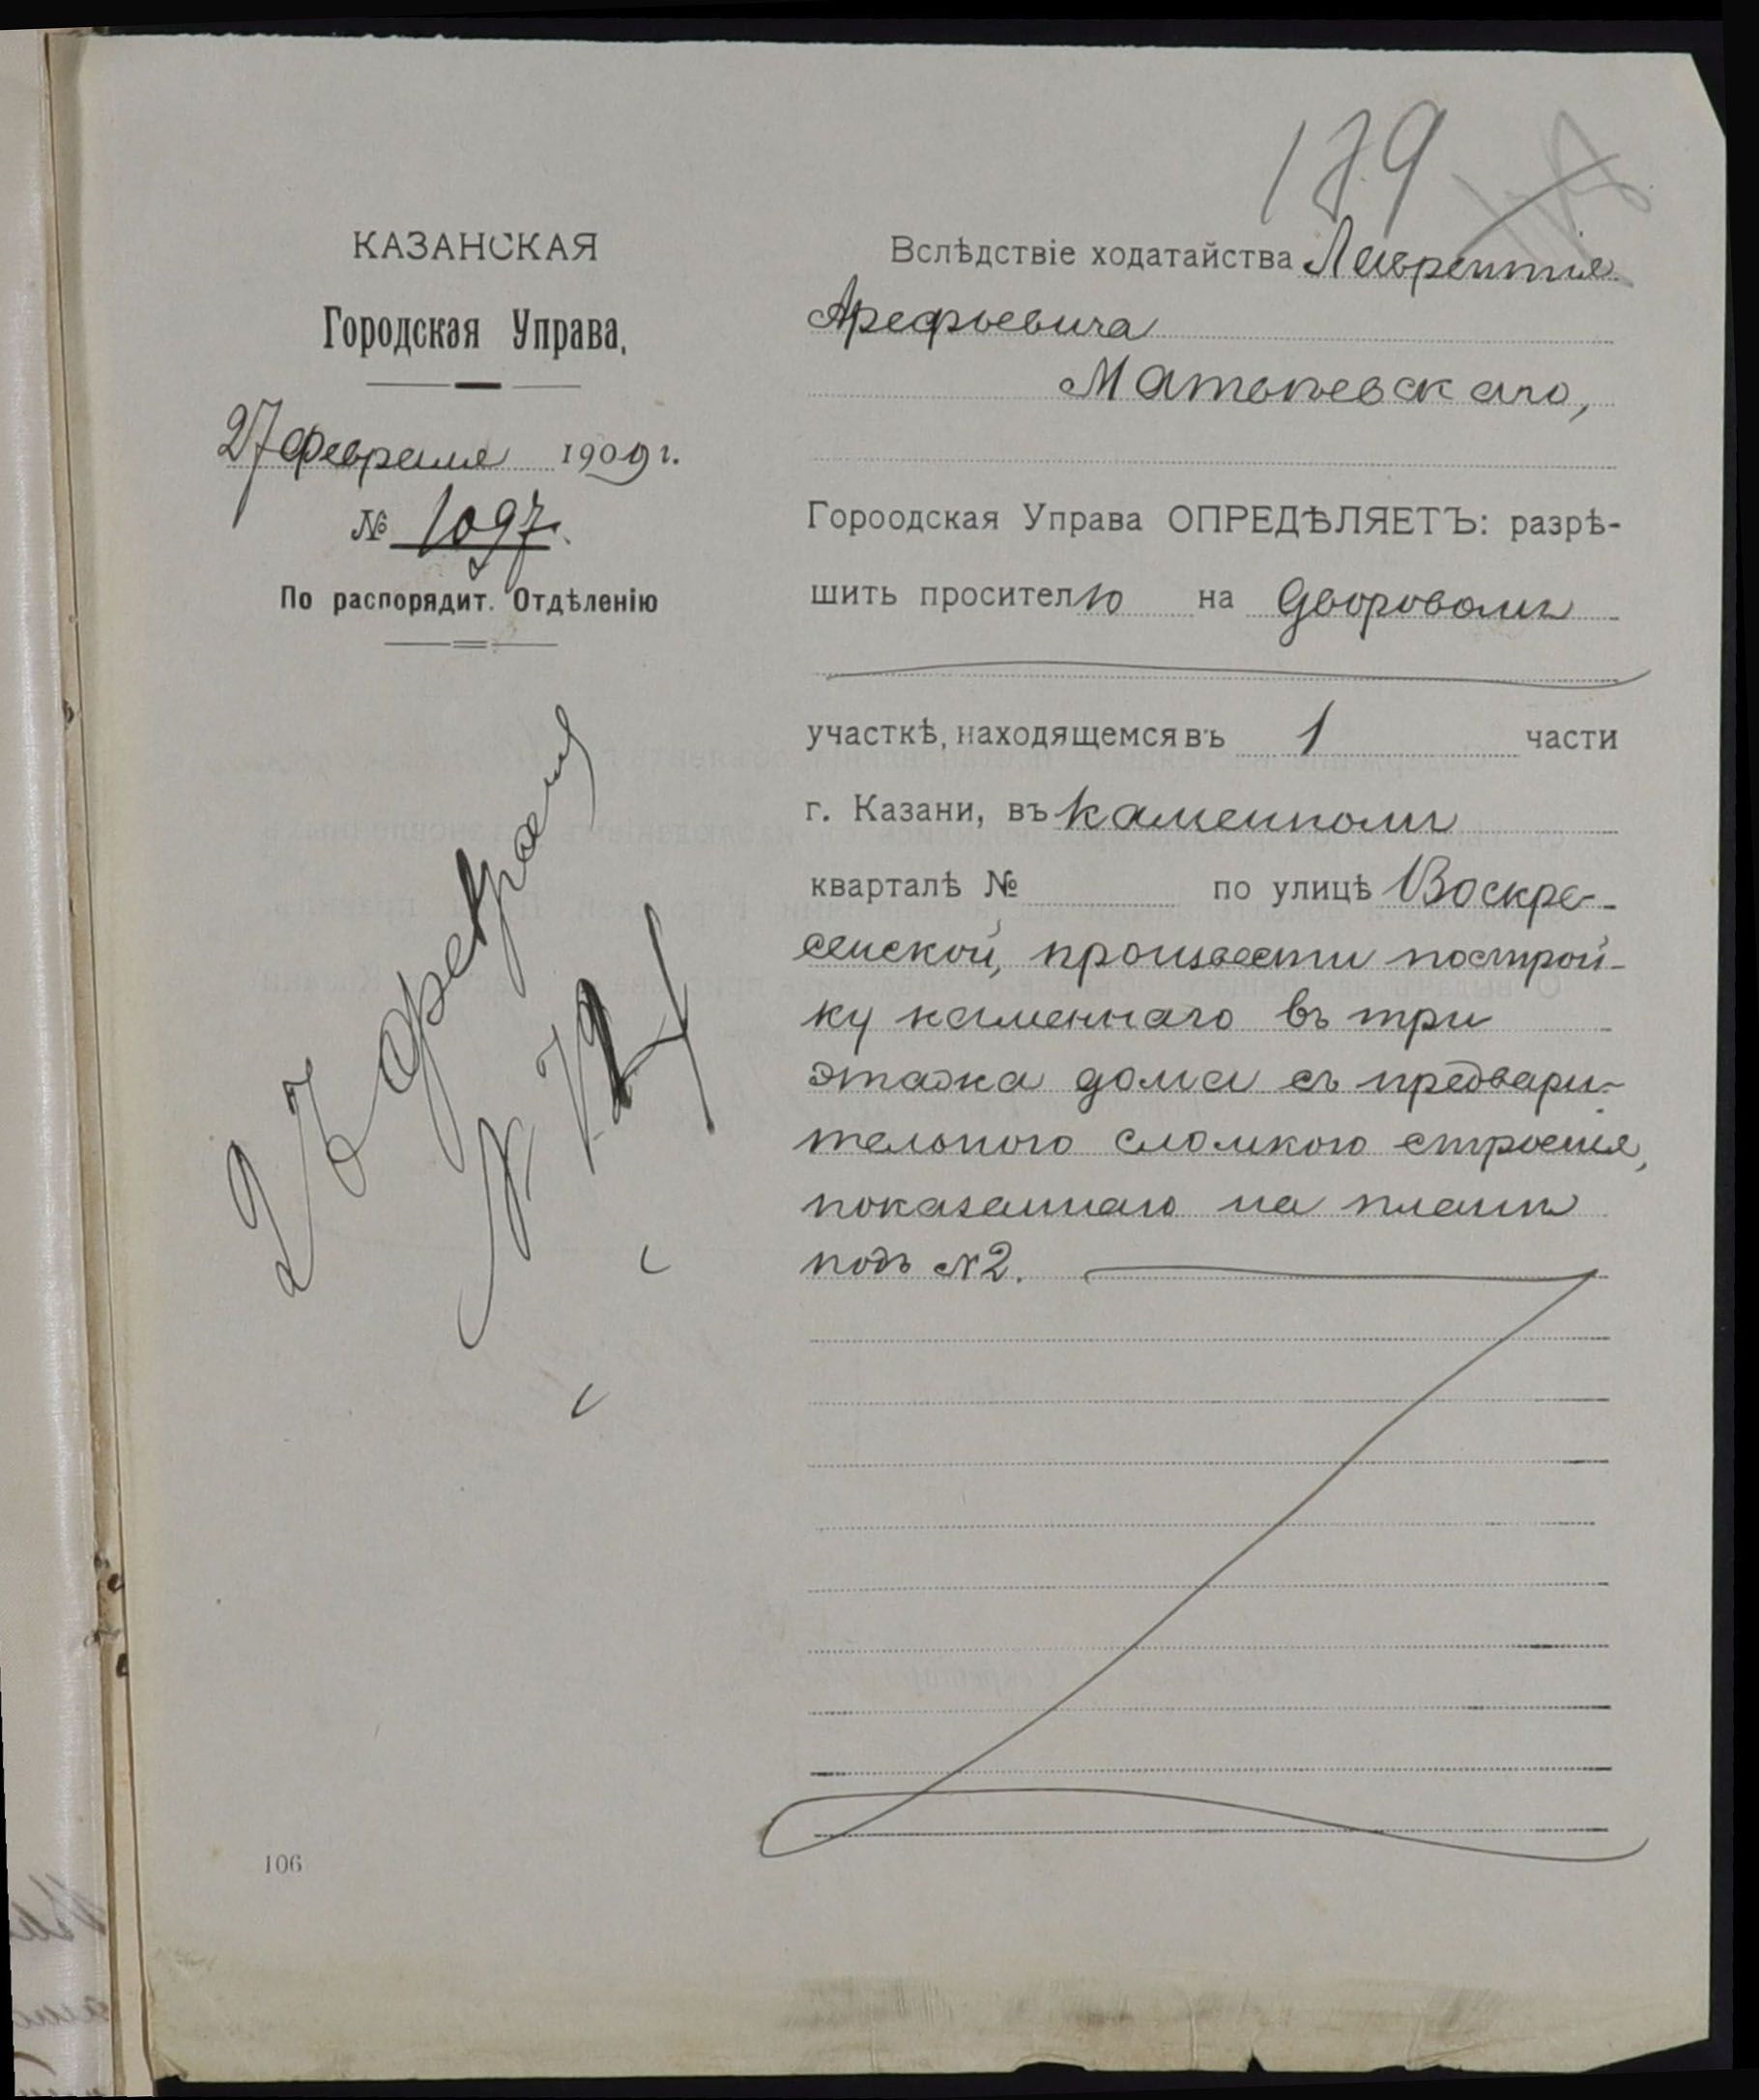 179
КАЗАНСКАЯ
Городская Управа.
27 февраля 1909 г.
№ 1097.
По распорядит. Отдѣленію
Вслѣдствіе ходатайства Лаврентія
Арефьевича
Матвѣевскаго,
Гороодская Управа ОПРЕДѢЛЯЕТЪ: разрѣ-
шить просителю на дворовомъ
участкѣ, находящемся въ 1 части
г. Казани, въ каменномъ
кварталѣ № по улицѣ Воскре-
сенской, произвести построй-
ку каменнаго въ три
этажа дома съ предвари-
тельного сломкою строенія,
показаннаго на планѣ
подъ №2.
февраля
№
106